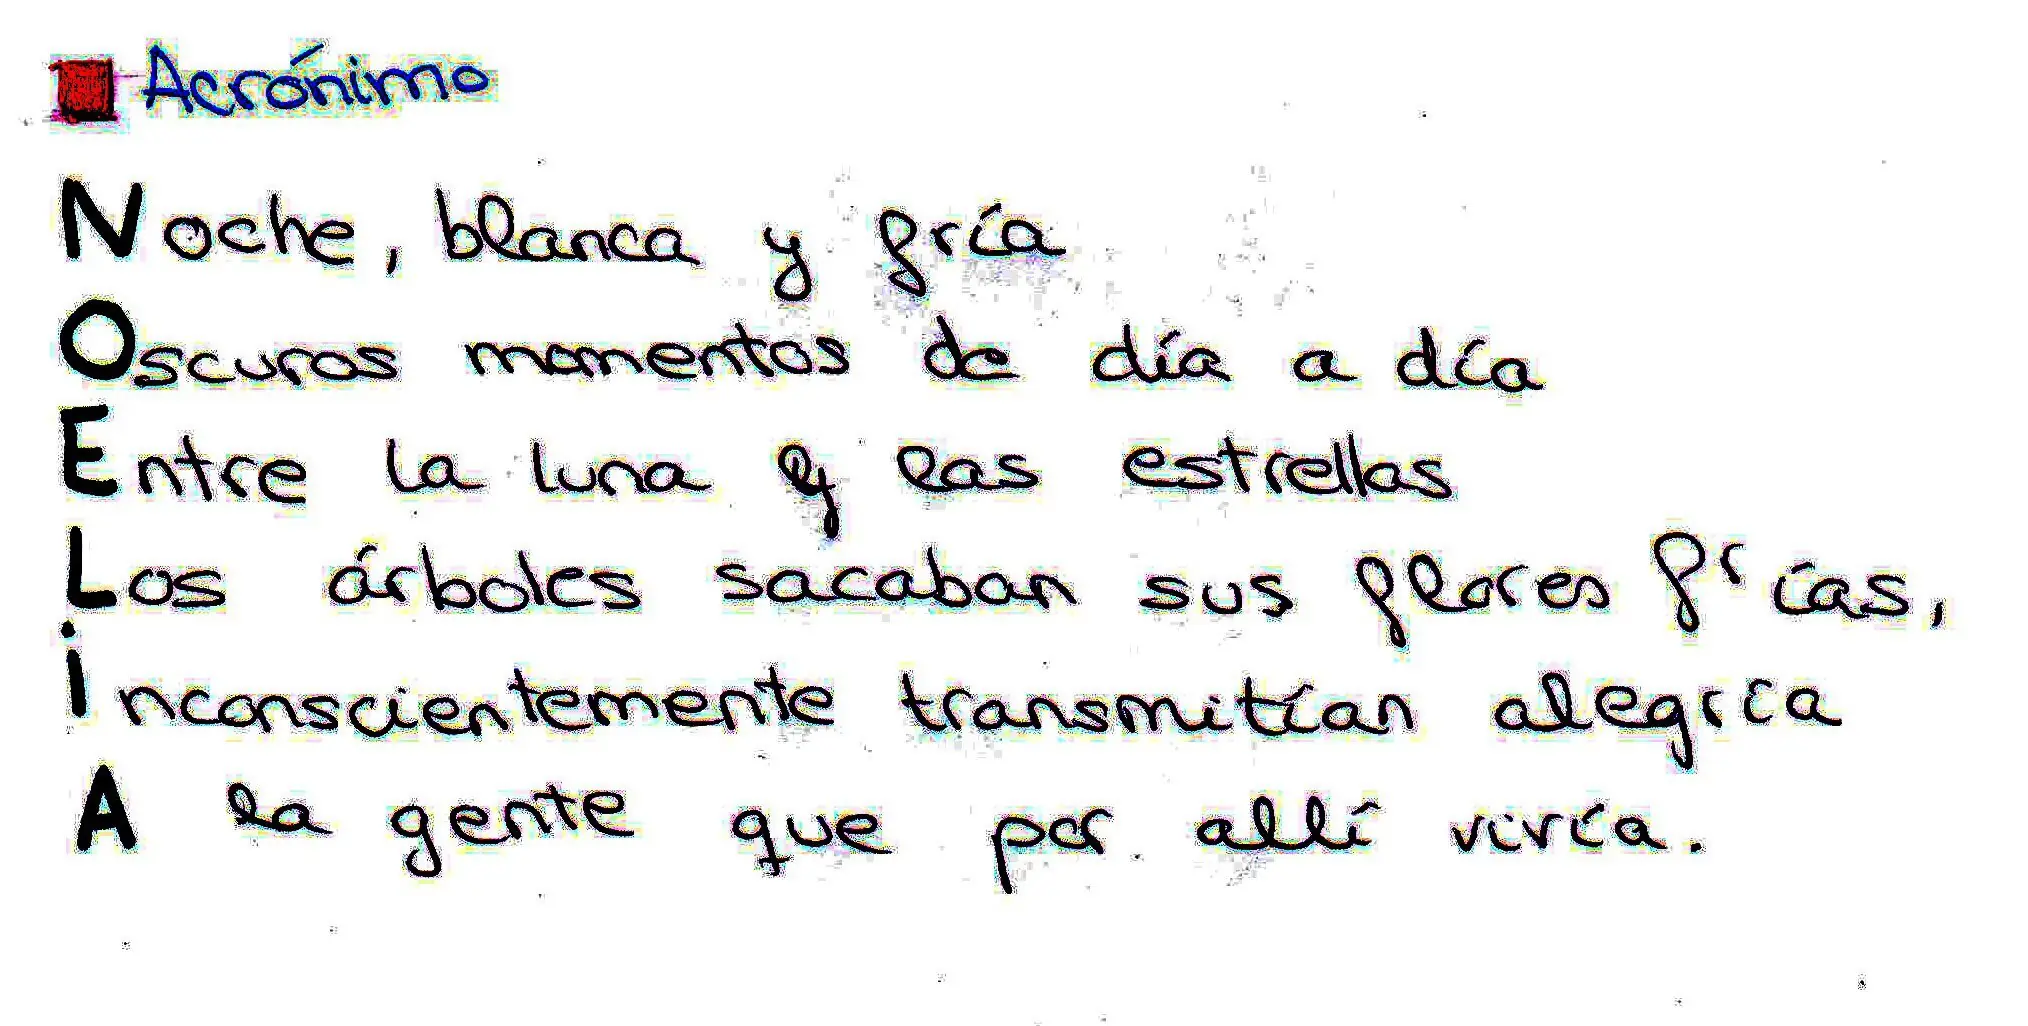 Acrónimo
Noche, blanca y fría
Oscuros momentos de día a día
Entre la luna y las estrellas
Los árboles sacaban sus flores frías,
Inconscientemente transmitían alegría
A la gente que por allí vivía.